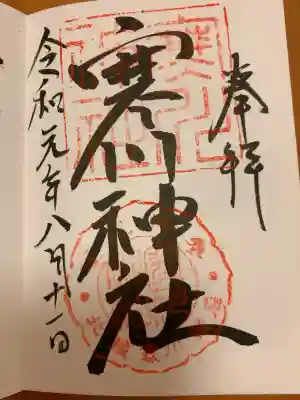 奉拝
寒川神社
令和元年八月十一日